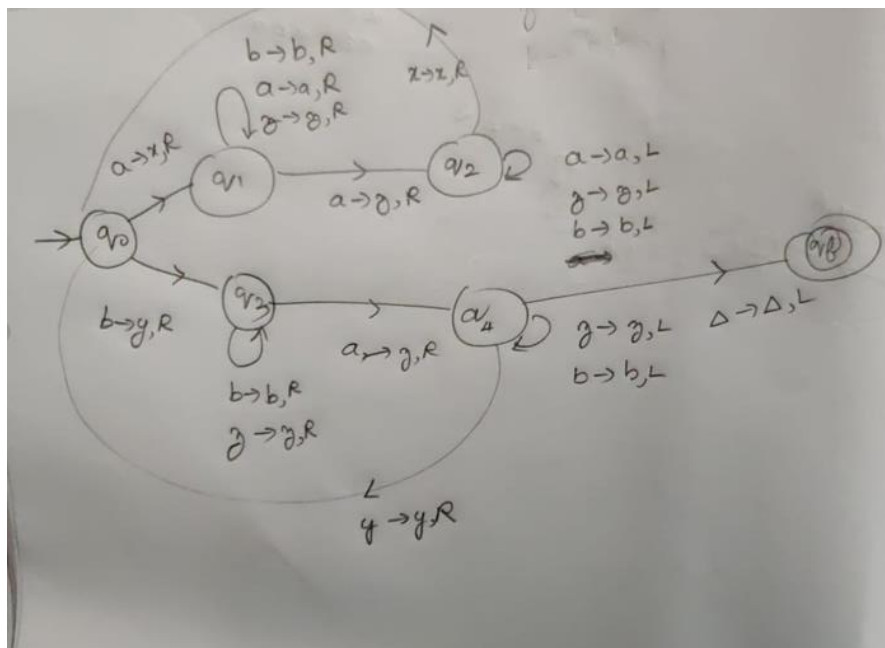 b→b,R
a→a,R
z→z,R
x→x,R
a→x,R
q1
a→z,R
q2
a→a,L
z→z,L
b→b,L
q0
qf
b→y,R
q3
a→z,R
q4
z→z,L
b→b,L
Δ→Δ,L
b→b,R
z→z,R
y→y,R